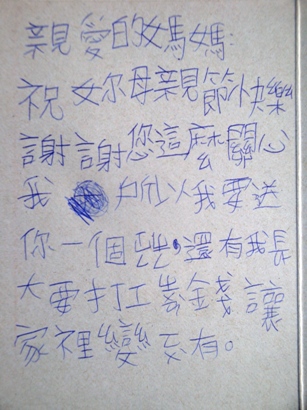 親愛的媽媽
祝妳母親節快樂
謝謝您這麼關心
我所以我要送
你一個，還有我長
大要打工錢讓
家裡變有。